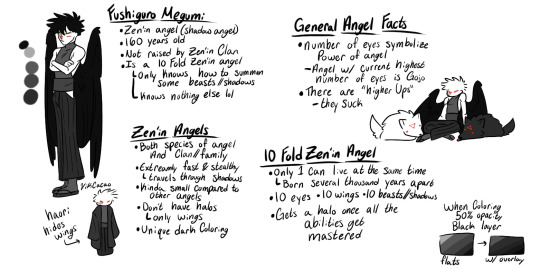 Fushiguro Megumi:
•Zen'in angel (shadow angel)
•160 years old
•Not raised by Zen'in Clan
•Is a 10 Fold Zen'in angel
↳Only knows how to summon
some beasts//shadows
↳Knows nothing else lol
Zen'in Angels
•Both species of angel
And Clan//family
•Extreamly fast & stealthy
↳travels through shadows
•Kinda small compared to
other angels
•Don't have halos
↳only wings
•Unique dark Coloring
haori
hides
wings
General Angel Facts
•Number of eyes symbolize
Power of angel
-Angel w/ current highest
number of eyes is Gojo
•There are "higher Ups"
-they suck
10 Fold Zen'in Angel
•Only 1 Can live at the same time
↳Born several thousand years apart
•10 eyes •10 wings •10 beasts//shadows
•Gets a halo once all the
abilities get
mastered
When Coloring
50% opacity
Black layer
flats
w/ overlay